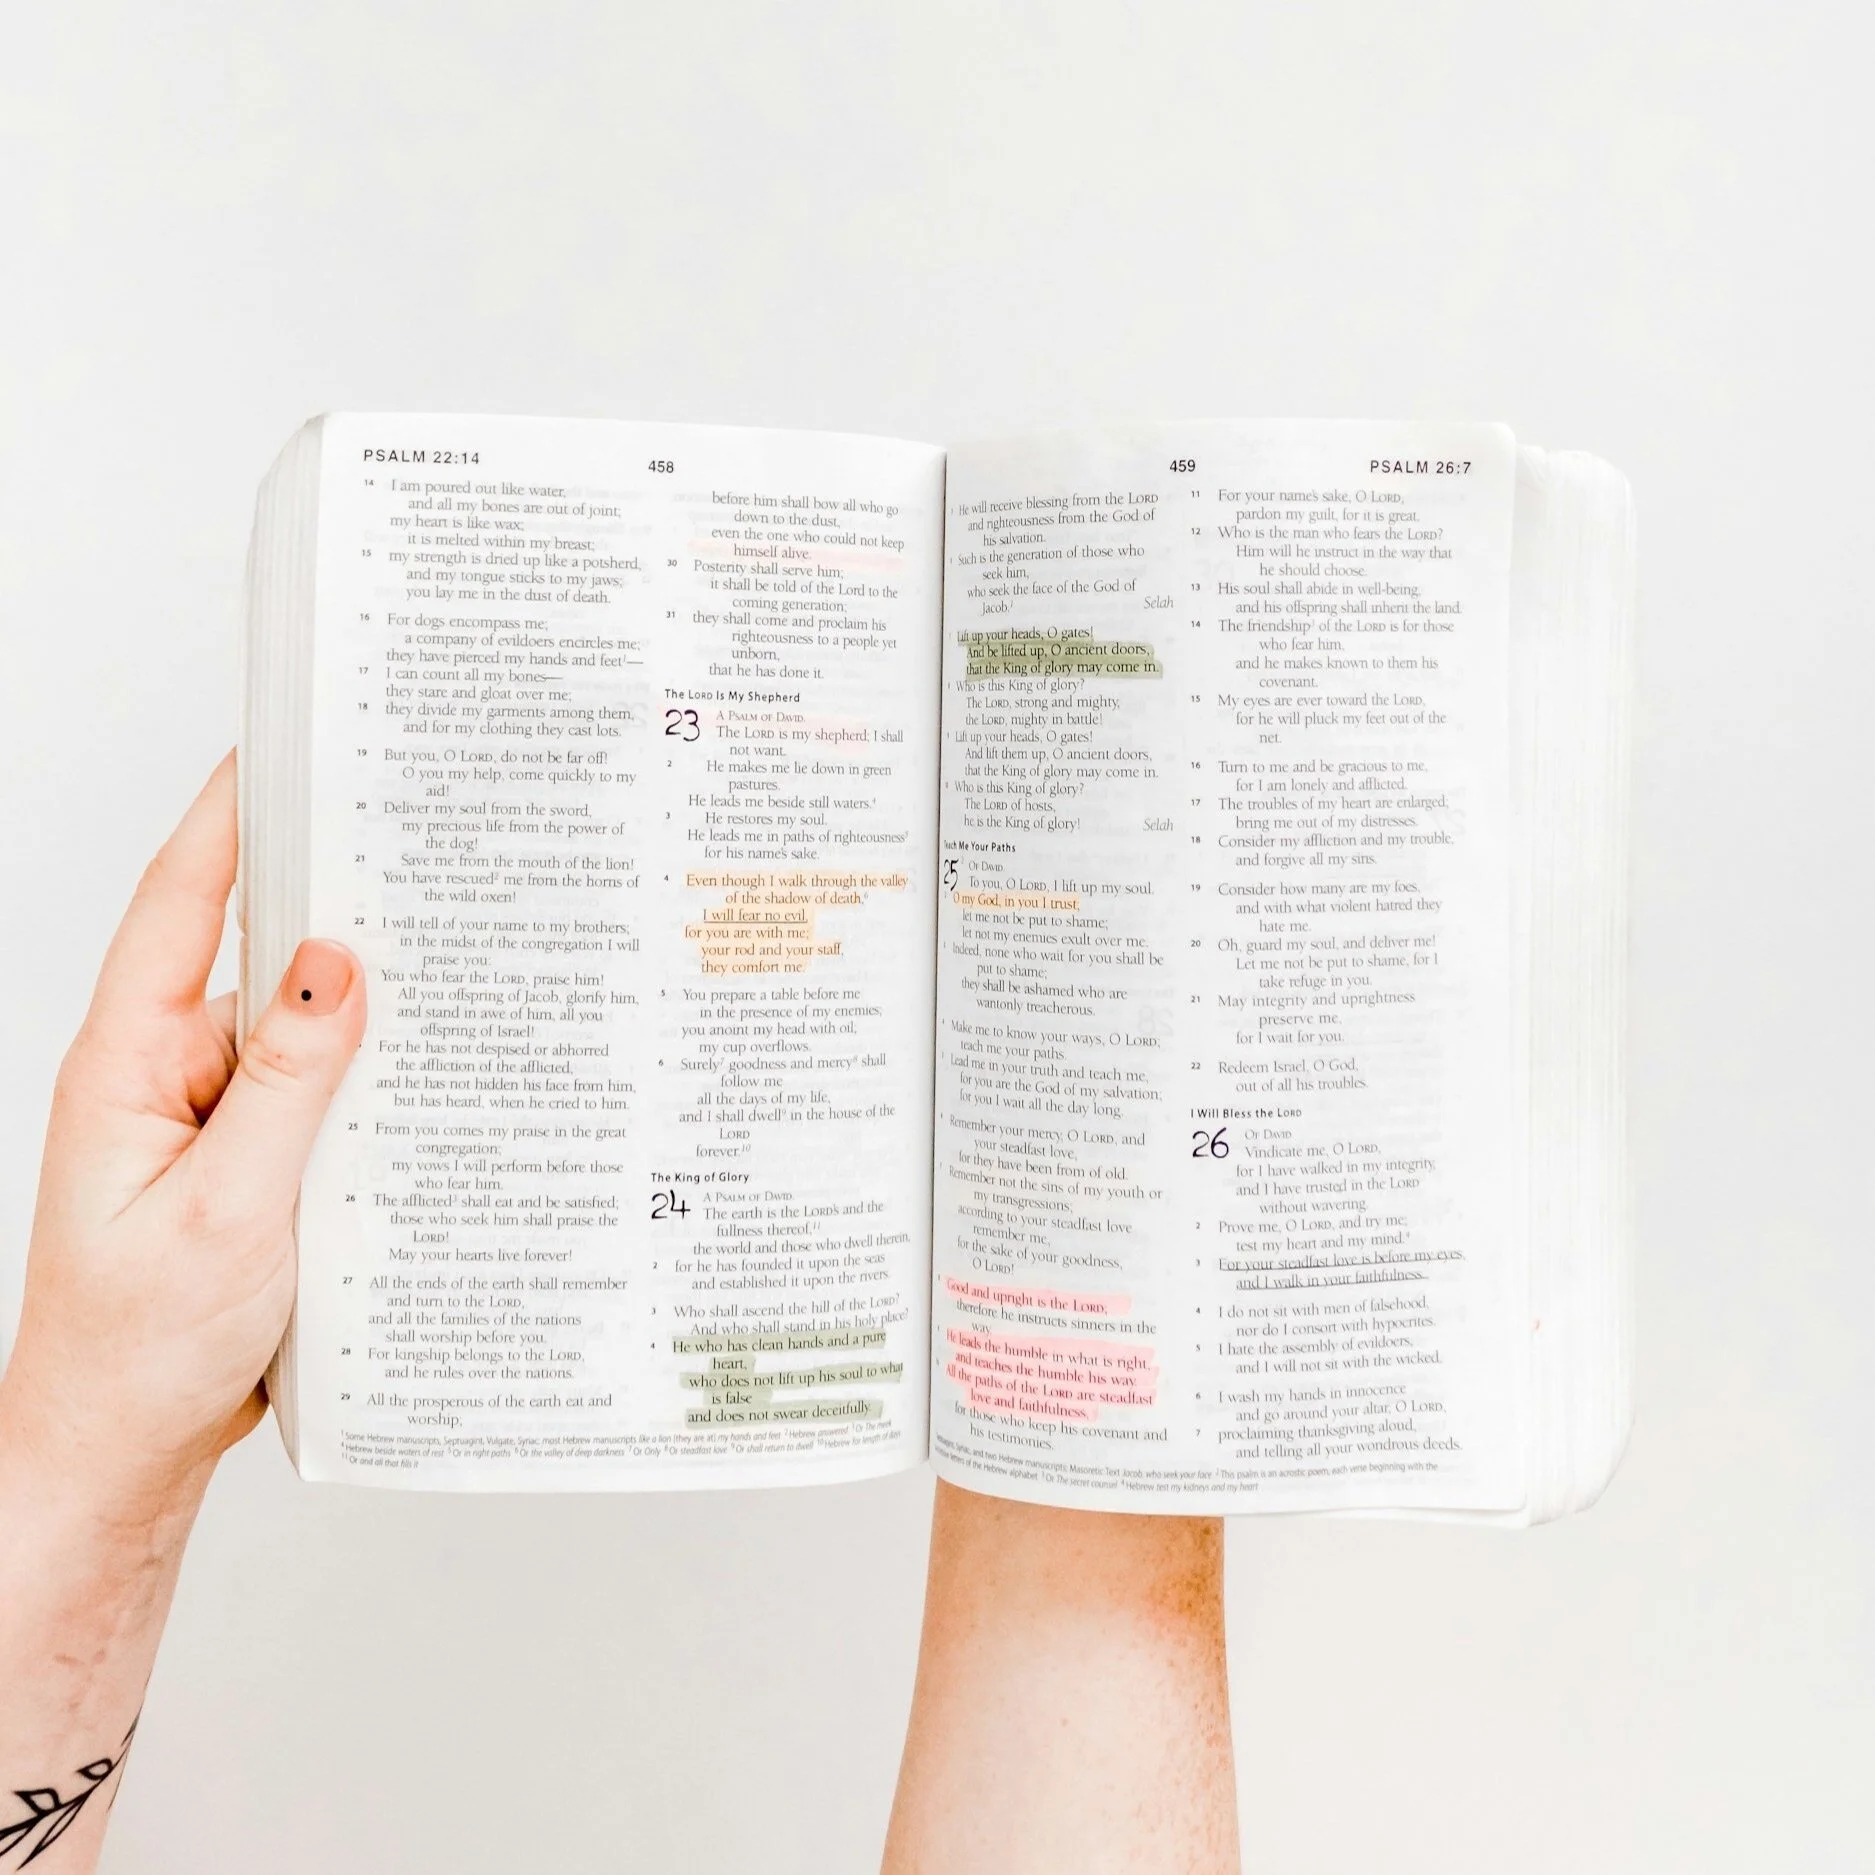 PSALM 22:14
458
14 I am poured out like water,
and all my bones are out of joint;
my heart is like wax;
it is melted within my breast;
15 my strength is dried up like a potsherd,
and my tongue sticks to my jaws;
you lay me in the dust of death.
16 For dogs encompass me;
a company of evildoers encircles me;
they have pierced my hands and feet¹—
17 I can count all my bones—
they stare and gloat over me;
18 they divide my garments among them,
and for my clothing they cast lots.
19 But you, O LORD, do not be far off!
O you my help, come quickly to my
aid!
20 Deliver my soul from the sword,
my precious life from the power of
the dog!
21 Save me from the mouth of the lion!
You have rescued² me from the horns of
the wild oxen!
22 I will tell of your name to my brothers;
in the midst of the congregation I will
praise you:
You who fear the LORD, praise him!
All you offspring of Jacob, glorify him,
and stand in awe of him, all you
offspring of Israel!
For he has not despised or abhorred
the affliction of the afflicted,
and he has not hidden his face from him,
but has heard, when he cried to him.
25 From you comes my praise in the great
congregation;
my vows I will perform before those
who fear him.
26 The afflicted³ shall eat and be satisfied;
those who seek him shall praise the
LORD!
May your hearts live forever!
27 All the ends of the earth shall remember
and turn to the LORD,
and all the families of the nations
shall worship before you.
28 For kingship belongs to the LORD,
and he rules over the nations.
29 All the prosperous of the earth eat and
worship;
before him shall bow all who go
down to the dust,
even the one who could not keep
himself alive.
30 Posterity shall serve him;
it shall be told of the Lord to the
coming generation;
31 they shall come and proclaim his
righteousness to a people yet
unborn,
that he has done it.
The LORD Is My Shepherd
23 A PSALM OF DAVID.
The LORD is my shepherd; I shall
not want.
2 He makes me lie down in green
pastures.
He leads me beside still waters.⁴
3 He restores my soul.
He leads me in paths of righteousness⁵
for his name's sake.
4 Even though I walk through the valley
of the shadow of death,⁶
I will fear no evil,
for you are with me;
your rod and your staff,
they comfort me.
5 You prepare a table before me
in the presence of my enemies;
you anoint my head with oil;
my cup overflows.
6 Surely⁷ goodness and mercy⁸ shall
follow me
all the days of my life,
and I shall dwell⁹ in the house of the
LORD
forever.¹⁰
The King of Glory
24 A PSALM OF DAVID.
The earth is the LORD's and the
fullness thereof,¹¹
the world and those who dwell therein,
2 for he has founded it upon the seas
and established it upon the rivers.
3 Who shall ascend the hill of the LORD?
And who shall stand in his holy place?
4 He who has clean hands and a pure
heart,
who does not lift up his soul to what
is false
and does not swear deceitfully.
¹ Some Hebrew manuscripts, Septuagint, Vulgate, Syriac; most Hebrew manuscripts like a lion [they are at] my hands and feet ² Hebrew answered ³ Or The meek
⁴ Hebrew beside waters of rest ⁵ Or in right paths ⁶ Or the valley of deep darkness ⁷ Or Only ⁸ Or steadfast love ⁹ Or shall return to dwell ¹⁰ Hebrew for length of days
¹¹ Or and all that fills it
459
PSALM 26:7
He will receive blessing from the LORD
and righteousness from the God of
his salvation.
Such is the generation of those who
seek him,
who seek the face of the God of
Jacob.¹ Selah
Lift up your heads, O gates!
And be lifted up, O ancient doors,
that the King of glory may come in.
Who is this King of glory?
The LORD, strong and mighty,
the LORD, mighty in battle!
Lift up your heads, O gates!
And lift them up, O ancient doors,
that the King of glory may come in.
Who is this King of glory?
The LORD of hosts,
he is the King of glory! Selah
Teach Me Your Paths
25 OF DAVID.
To you, O LORD, I lift up my soul.
O my God, in you I trust;
let me not be put to shame;
let not my enemies exult over me.
Indeed, none who wait for you shall be
put to shame;
they shall be ashamed who are
wantonly treacherous.
Make me to know your ways, O LORD;
teach me your paths.
Lead me in your truth and teach me,
for you are the God of my salvation;
for you I wait all the day long.
Remember your mercy, O LORD, and
your steadfast love,
for they have been from of old.
Remember not the sins of my youth or
my transgressions;
according to your steadfast love
remember me,
for the sake of your goodness,
O LORD!
Good and upright is the LORD;
therefore he instructs sinners in the
way.
He leads the humble in what is right,
and teaches the humble his way.
All the paths of the LORD are steadfast
love and faithfulness,
for those who keep his covenant and
his testimonies.
11 For your name's sake, O LORD,
pardon my guilt, for it is great.
12 Who is the man who fears the LORD?
Him will he instruct in the way that
he should choose.
13 His soul shall abide in well-being,
and his offspring shall inherit the land.
14 The friendship³ of the LORD is for those
who fear him,
and he makes known to them his
covenant.
15 My eyes are ever toward the LORD,
for he will pluck my feet out of the
net.
16 Turn to me and be gracious to me,
for I am lonely and afflicted.
17 The troubles of my heart are enlarged;
bring me out of my distresses.
18 Consider my affliction and my trouble,
and forgive all my sins.
19 Consider how many are my foes,
and with what violent hatred they
hate me.
20 Oh, guard my soul, and deliver me!
Let me not be put to shame, for I
take refuge in you.
21 May integrity and uprightness
preserve me,
for I wait for you.
22 Redeem Israel, O God,
out of all his troubles.
I Will Bless the LORD
26 OF DAVID.
Vindicate me, O LORD,
for I have walked in my integrity,
and I have trusted in the LORD
without wavering.
2 Prove me, O LORD, and try me;
test my heart and my mind.⁴
3 For your steadfast love is before my eyes,
and I walk in your faithfulness.
4 I do not sit with men of falsehood,
nor do I consort with hypocrites.
5 I hate the assembly of evildoers,
and I will not sit with the wicked.
6 I wash my hands in innocence
and go around your altar, O LORD,
7 proclaiming thanksgiving aloud,
and telling all your wondrous deeds.
Syriac, and two Hebrew manuscripts; Masoretic Text Jacob, who seek your face ² This psalm is an acrostic poem, each verse beginning with the
letters of the Hebrew alphabet ³ Or The secret counsel ⁴ Hebrew test my kidneys and my heart